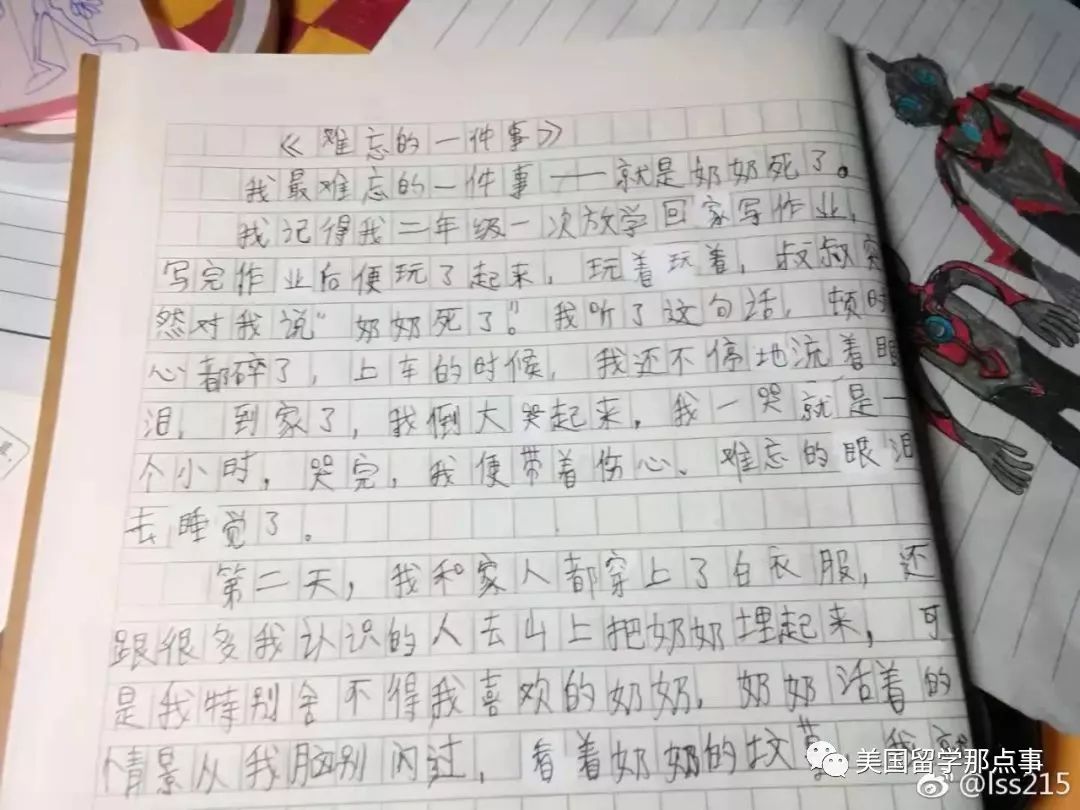 《难忘的一件事》
我最难忘的一件事——就是奶奶死了。
我记得我二年级一次放学回家写作业,
写完作业后便玩了起来,玩着玩着,叔叔突
然对我说“奶奶死了”。我听了这句话,顿时
心都碎了,上车的时候,我还不停地流着眼
泪,到家了,我倒大哭起来,我一哭就是一
个小时,哭完,我便带着伤心、难忘的眼泪
去睡觉了。
第二天,我和家人都穿上了白衣服,还
跟很多我认识的人去山上把奶奶埋起来,可
是我特别舍不得我喜欢的奶奶,奶奶活着的
情景从我脑别闪过,看着奶奶的坟墓,我
美国留学那点事
@lss215